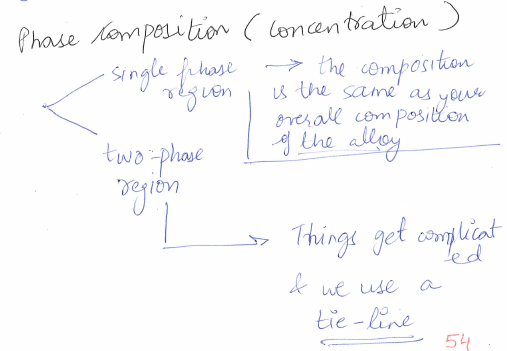 Phase composition (concentration)
single phase
region
→ the composition
is the same as your
overall composition
of the alloy
two-phase
region
Things get complicat
ed
& we use a
tie-line
54